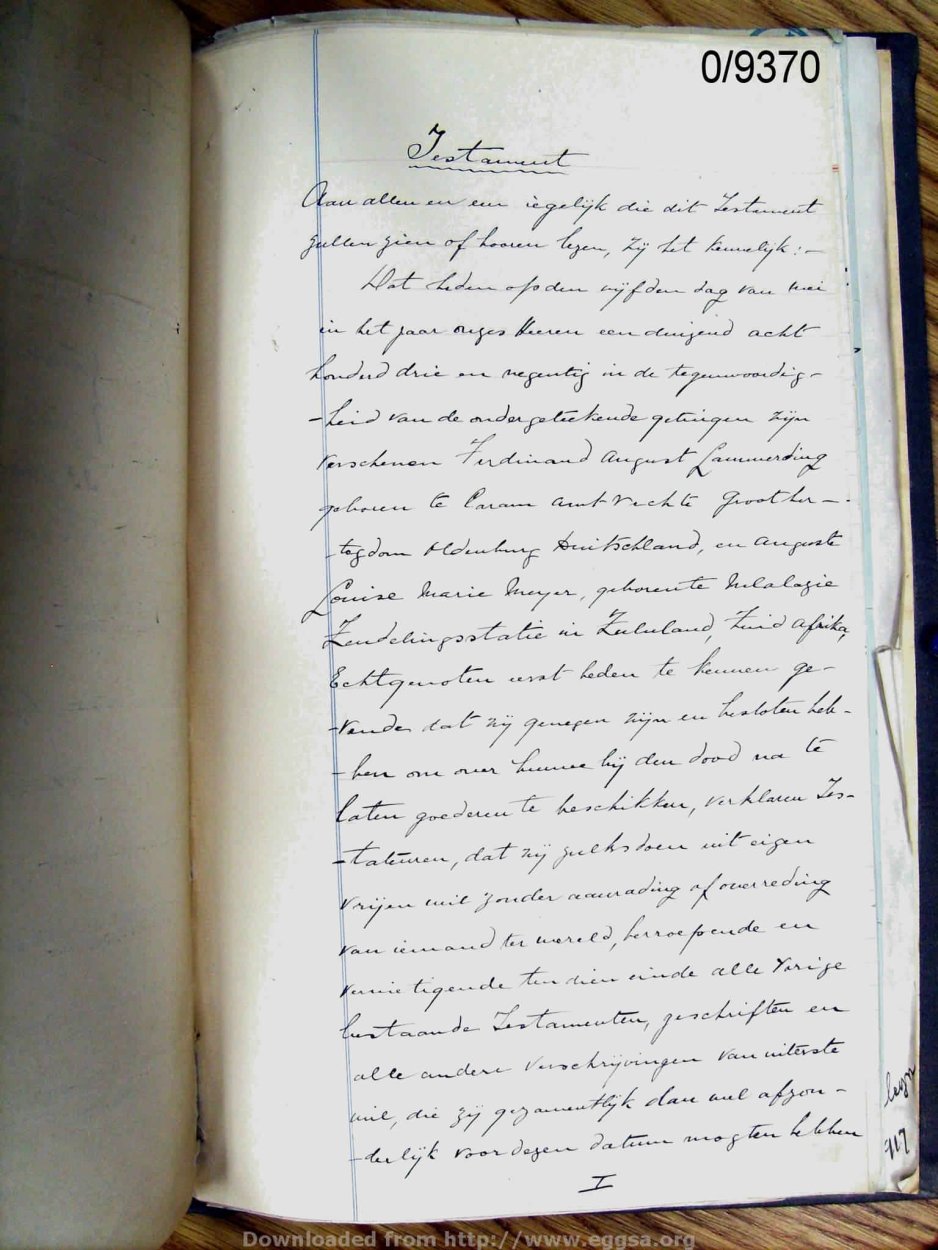 0/9370
Testament
Aan allen en een iegelijk die dit Testament
zullen zien of hooren lezen, zij het kennelijk:—
Dat heden op den vijfden dag van Mei
in het jaar onzes Heeren een duizend acht
honderd drie en negentig in de tegenwoordig-
-heid van de ondergeteekende getuigen zijn
verschenen Ferdinand August Lammerding
geboren te amt Vechte Groother-
-togdom Oldenburg Duitschland, en Auguste
Louise Marie Meyer, geboren te
Zendelingsstatie in Zululand, Zuid Afrika,
Echtgenoten heden te kennen ge-
-vende dat zij genegen zijn en besloten heb-
-ben om over hunne bij den dood na te
laten goederen te beschikken, verklaren Tes-
-tateuren, dat zij zulks doen uit eigen
vrijen wil zonder aanrading of overreding
van iemand ter wereld, herroepende en
vernietigende ten dien einde alle vorige
bestaande Testamenten, geschriften en
alle andere verschrijvingen van uiterste
wil, die zij gezamentlijk dan wel afzon-
-derlijk voor dezen datum mogten hebben
I
117
Downloaded from http://www.eggsa.org